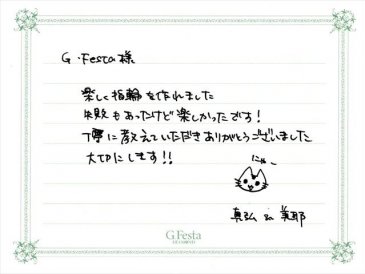 G.Festa様
楽しく指輪を作れました
失敗もあったけど楽しかったです!
丁寧に教えていただきありがとうございました
大切にします!!
にゃー
真弘 & 美耶
G.Festa